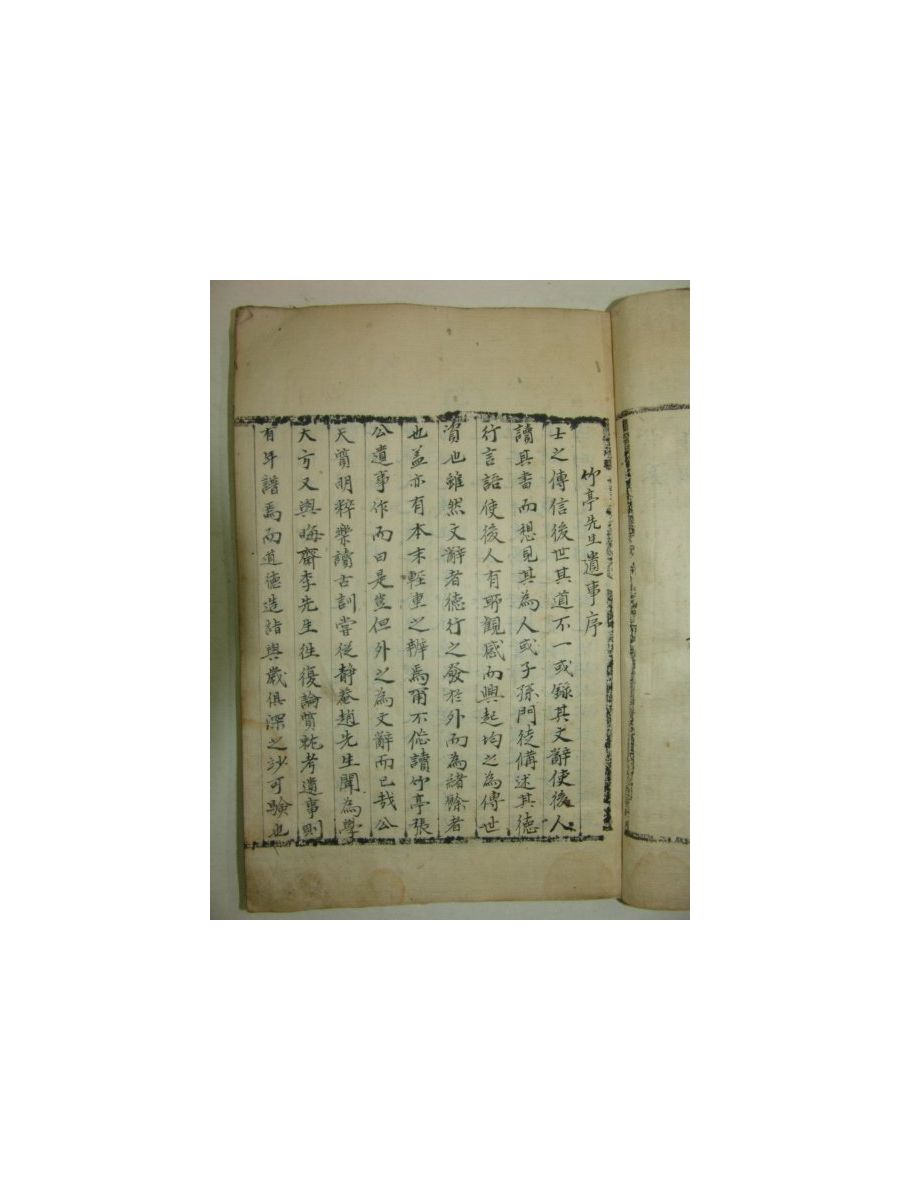 竹亭先生遺事序
士之傳信後世其道不一或錄其文辭使後人
讀其書而想見其為人或子孫門徒備述其德
行言語使後人有所觀感而興起均之為傳世
資也雖然文辭者德行之發於外而為緒餘者
也盖亦有本末輕重之辨焉甭不佞讀竹亭張
公遺事作而曰是豈但外之為文辭而已哉公
天質明粹樂讀古訓嘗從靜菴趙先生聞為學
大方又與晦齋李先生徃復論質䡄考遺事則
有年譜焉而道德造詣與歲俱深之妙可驗也